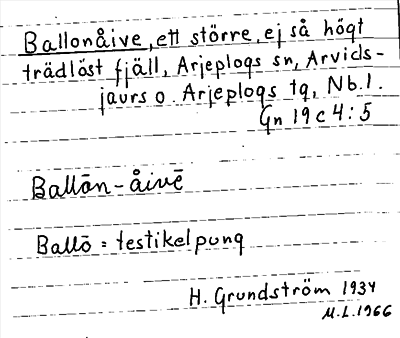 Ballonåive, ett större, ej så högt
trädlöst fjäll, Arjeplogs sn, Arvids-
jaurs o. Arjeplogs tg, Nb. l.
Gn 19 c 4:5
Ballōn-åivē
Ballō = testikelpung
H. Grundström 1934
M.L. 1966